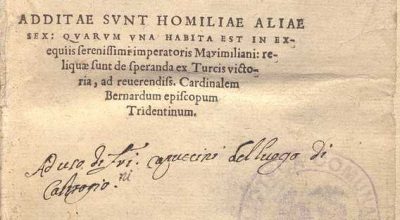 ADDITAE SVNT HOMILIAE ALIAE
SEX: QVARVM VNA HABITA EST IN EX-
equiis serenissimi imperatoris Maximiliani: re-
liquæ sunt de speranda ex Turcis victo-
ria, ad reuerendiss. Cardinalem
Bernardum episcopum
Tridentinum.
Ad uso di capuccini del luogo di